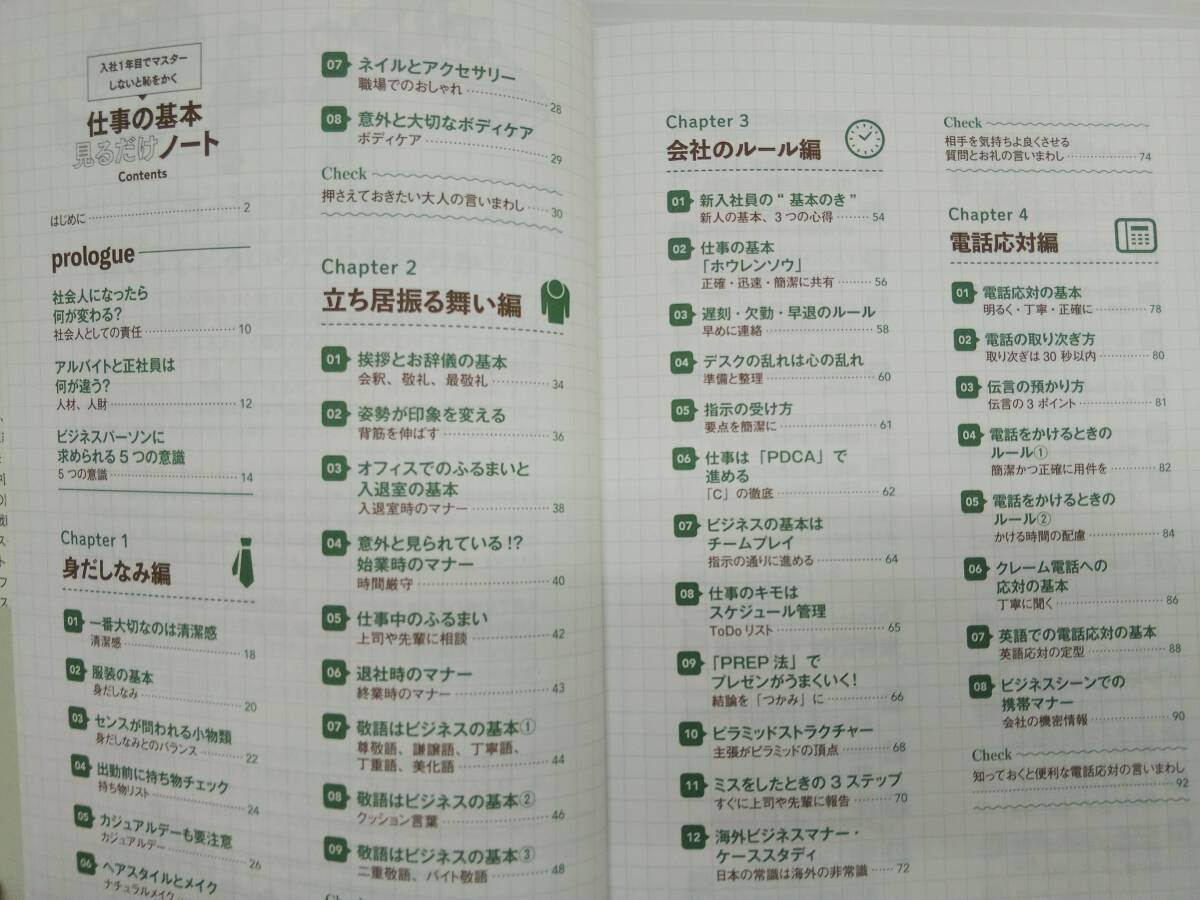 入社1年目でマスター
しないと恥をかく
仕事の基本
見るだけノート
Contents
はじめに 2
prologue
社会人になったら
何が変わる?
社会人としての責任 10
アルバイトと正社員は
何が違う?
人材、人財 12
ビジネスパーソンに
求められる5つの意識
5つの意識 14
Chapter 1
身だしなみ編
01 一番大切なのは清潔感
清潔感 18
02 服装の基本
身だしなみ 20
03 センスが問われる小物類
身だしなみとのバランス 22
04 出勤前に持ち物チェック
持ち物リスト 24
05 カジュアルデーも要注意
カジュアルデー 26
06 ヘアスタイルとメイク
ナチュラルメイク
07 ネイルとアクセサリー
職場でのおしゃれ 28
08 意外と大切なボディケア
ボディケア 29
Check
押さえておきたい大人の言いまわし 30
Chapter 2
立ち居振る舞い編
01 挨拶とお辞儀の基本
会釈、敬礼、最敬礼 34
02 姿勢が印象を変える
背筋を伸ばす 36
03 オフィスでのふるまいと
入退室の基本
入退室時のマナー 38
04 意外と見られている!?
始業時のマナー
時間厳守 40
05 仕事中のふるまい
上司や先輩に相談 42
06 退社時のマナー
終業時のマナー 43
07 敬語はビジネスの基本①
尊敬語、謙譲語、丁寧語、
丁重語、美化語 44
08 敬語はビジネスの基本②
クッション言葉 46
09 敬語はビジネスの基本③
二重敬語、バイト敬語 48
Chapter 3
会社のルール編
01 新入社員の“基本のき”
新人の基本、3つの心得 54
02 仕事の基本
「ホウレンソウ」
正確・迅速・簡潔に共有 56
03 遅刻・欠勤・早退のルール
早めに連絡 58
04 デスクの乱れは心の乱れ
準備と整理 60
05 指示の受け方
要点を簡潔に 61
06 仕事は「PDCA」で
進める
「C」の徹底 62
07 ビジネスの基本は
チームプレイ
指示の通りに進める 64
08 仕事のキモは
スケジュール管理
ToDoリスト 65
09 「PREP法」で
プレゼンがうまくいく!
結論を「つかみ」に 66
10 ピラミッドストラクチャー
主張がピラミッドの頂点 68
11 ミスをしたときの3ステップ
すぐに上司や先輩に報告 70
12 海外ビジネスマナー・
ケーススタディ
日本の常識は海外の非常識 72
Check
相手を気持ちよ良くさせる
質問とお礼の言いまわし 74
Chapter 4
電話応対編
01 電話応対の基本
明るく・丁寧・正確に 78
02 電話の取り次ぎ方
取り次ぎは30秒以内 80
03 伝言の預かり方
伝言の3ポイント 81
04 電話をかけるときの
ルール①
簡潔かつ正確に用件を 82
05 電話をかけるときの
ルール②
かける時間の配慮 84
06 クレーム電話への
応対の基本
丁寧に聞く 86
07 英語での電話応対の基本
英語応対の定型 88
08 ビジネスシーンでの
携帯マナー
会社の機密情報 90
Check
知っておくと便利な電話応対の言いまわし
92